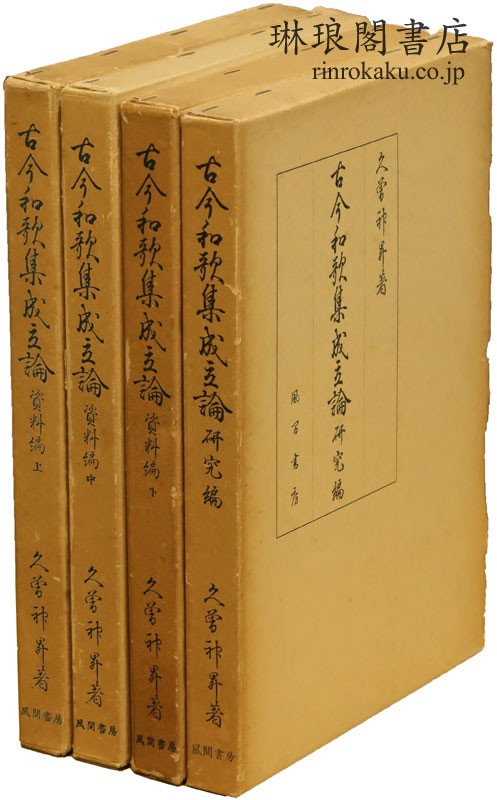 琳琅閣書店
rinrokaku.co.jp
久曾神昇著
古今和歌集成立論 研究編
風間書房
古今和歌集成立論 研究編
久曾神昇著
風間書房
古今和歌集成立論 資料編 下
久曾神昇著
風間書房
古今和歌集成立論 資料編 中
久曾神昇著
風間書房
古今和歌集成立論 資料編 上
久曾神昇著
風間書房